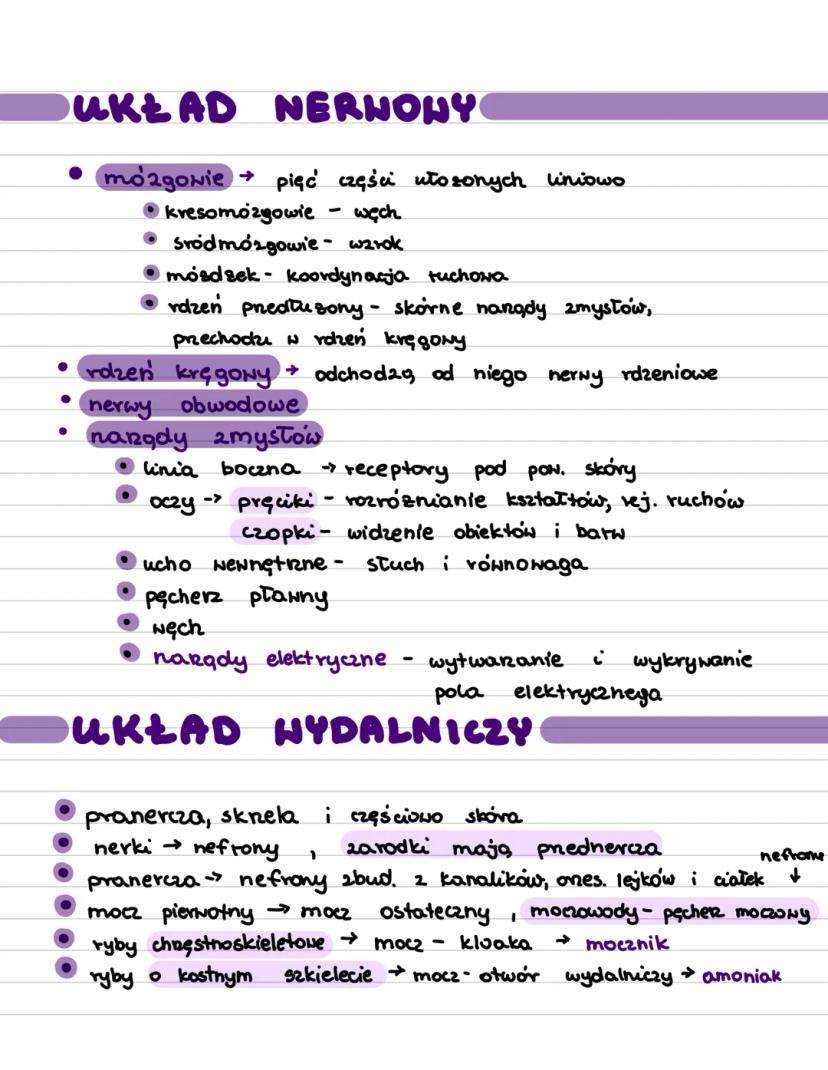 UKŁAD NERWOWY
mózgowie → pięć części ułożonych liniowo
kresomózgowie - węch
śródmózgowie - wzrok
móżdżek - koordynacja ruchowa
rdzeń przedłużony - skórne narządy zmysłów,
przechodzi w rdzeń kręgowy
rdzeń kręgowy → odchodzą od niego nerwy rdzeniowe
nerwy obwodowe
narządy zmysłów
linia boczna → receptory pod pow. skóry
oczy -> pręciki - rozróżnianie kształtów, rej. ruchów
czopki - widzenie obiektów i barw
ucho wewnętrzne - słuch i równowaga
pęcherz pławny
węch
narządy elektryczne - wytwarzanie i wykrywanie
pola elektrycznego
UKŁAD WYDALNICZY
pranercza, skrzela i częściowo skóra
nerki → nefrony, zarodki mają przednercza
nefrone
pranercza -> nefrony zbud. z kanalików, orzęs. lejków i ciałek ↓
mocz pierwotny → mocz ostateczny, moczowody - pęcherz moczowy
ryby chrzęstnoszkieletowe → mocz - kloaka → mocznik
ryby o kostnym szkielecie → mocz - otwór wydalniczy → amoniak